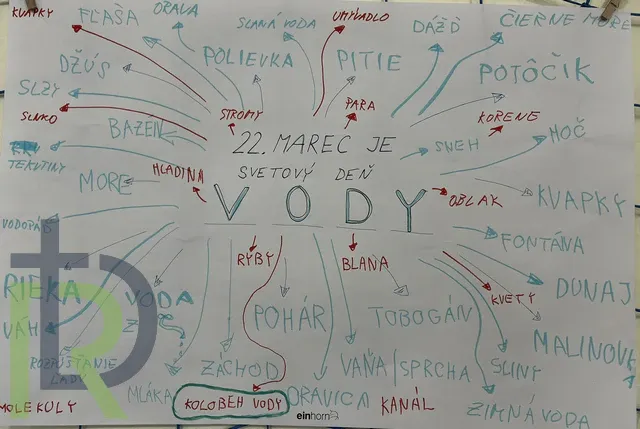 KVAPKY
FĽAŠA
ORAVA
SLANÁ VODA
UMÝVADLO
DÁŽĎ
ČIERNE MORE
DŽÚS
POLIEVKA
PITIE
POTÔČIK
SLZY
SLNKO
STROMY
PARA
KORENE
BAZÉN
TEKUTINY
22. MAREC JE
SNEH
MOČ
HLADINA
SVETOVÝ DEŇ
MORE
VODY
OBLAK
KVAPKY
VODOPÁD
FONTÁNA
RYBY
BLANA
RIEKA
VODA
KVETY
DUNAJ
VÁH
POHÁR
TOBOGÁN
MALINOVKA
ROZPÚŠŤANIE
ĽADU
ZÁCHOD
VAŇA/SPRCHA
SLINY
MLÁKA
KOLOBEH VODY
ORAVICA
KANÁL
MOLEKULY
einhorn
ZIMNÁ VODA